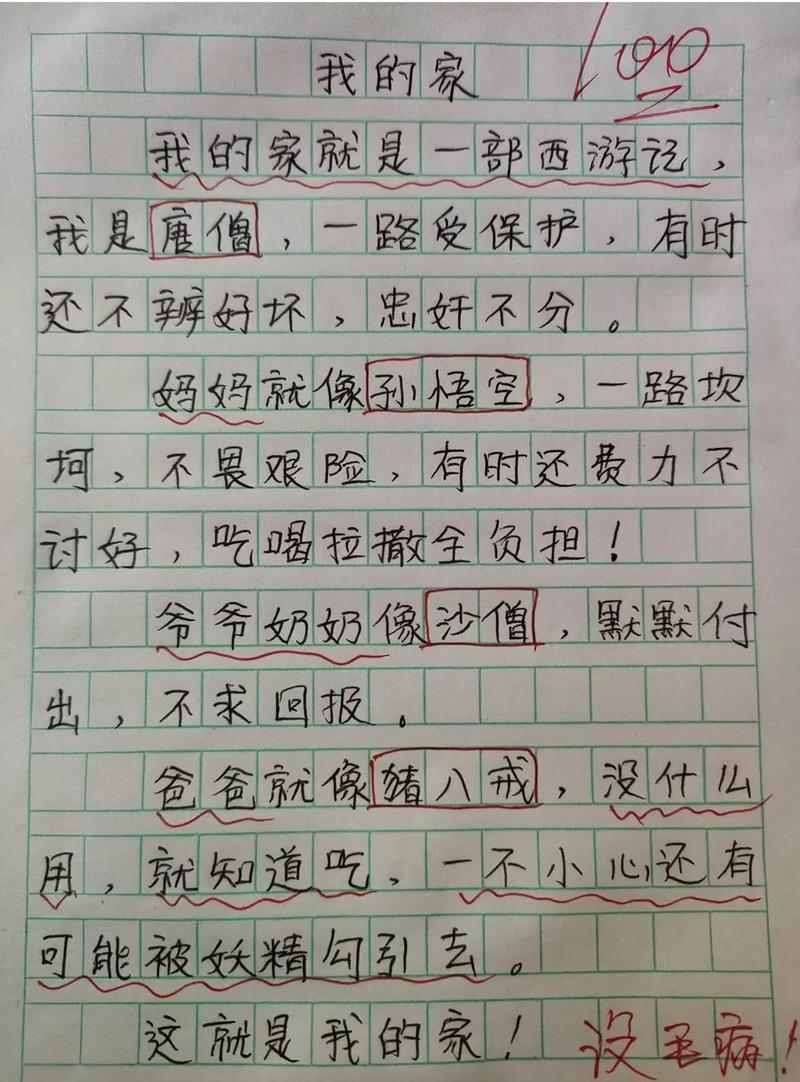 我的家
100
我的家就是一部西游记，
我是唐僧，一路受保护，有时
还不辨好坏，忠奸不分。
妈妈就像孙悟空，一路坎
坷，不畏艰险，有时还费力不
讨好，吃喝拉撒全负担！
爷爷奶奶像沙僧，默默付
出，不求回报。
爸爸就像猪八戒，没什么
用，就知道吃、一不小心还有
可能被妖精勾引去。
这就是我的家！
没毛病！